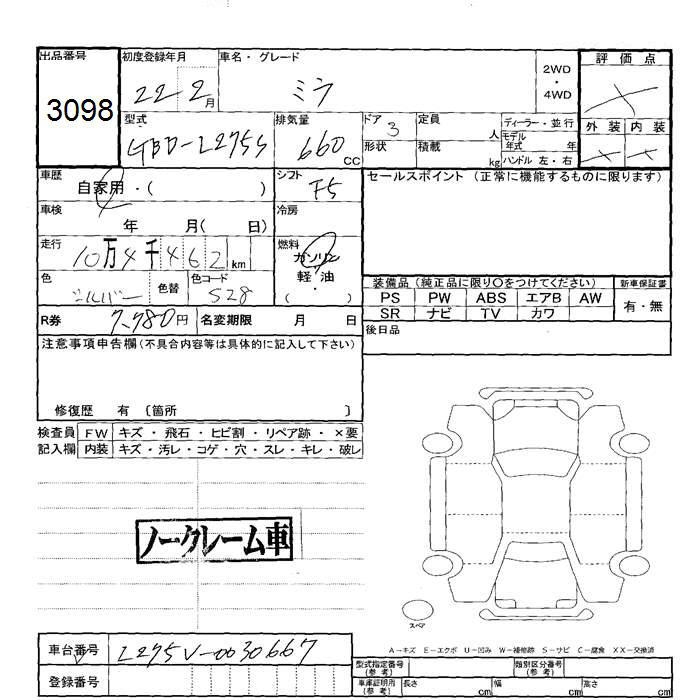 出品番号 初度登録年月 車名・グレード 評価点
3098 22 2月 ミラ 2WD・4WD
型式 排気量 ドア 3 定員 人 ディーラー・並行 外装 内装
660 CC 形状 積載 kg モデル年式 年 ハンドル 左・右
車歴 シフト セールスポイント (正常に機能するものに限ります)
自家用・( ) F5
車検 冷房
年 月( 日)
走行 燃料
10万4千462km ガソリン
色 色替 色コード 軽油
シルバー S28 ( )
装備品 (純正品に限り〇をつけてください) 新車保証書
PS PW ABS エアB AW 有・無
SR ナビ TV カワ
R券 7,780円 名変期限 月 日 後日品
注意事項申告欄(不具合内容等は具体的に記入して下さい)
修復歴 有 〔箇所 〕
検査員 FW キズ・飛石・ヒビ割・リペア跡・×要
記入欄 内装 キズ・汚レ・コゲ・穴・スレ・キレ・破レ
ノークレーム車
スペア
A-キズ E-エクボ U-凹み W-補修跡 S-サビ C-腐食 XX-交換済
車台番号 L275V-0030667
型式指定番号(参考) 類別区分番号(参考)
登録番号 車庫証明用(参考) 長さ cm 幅 cm 高さ cm